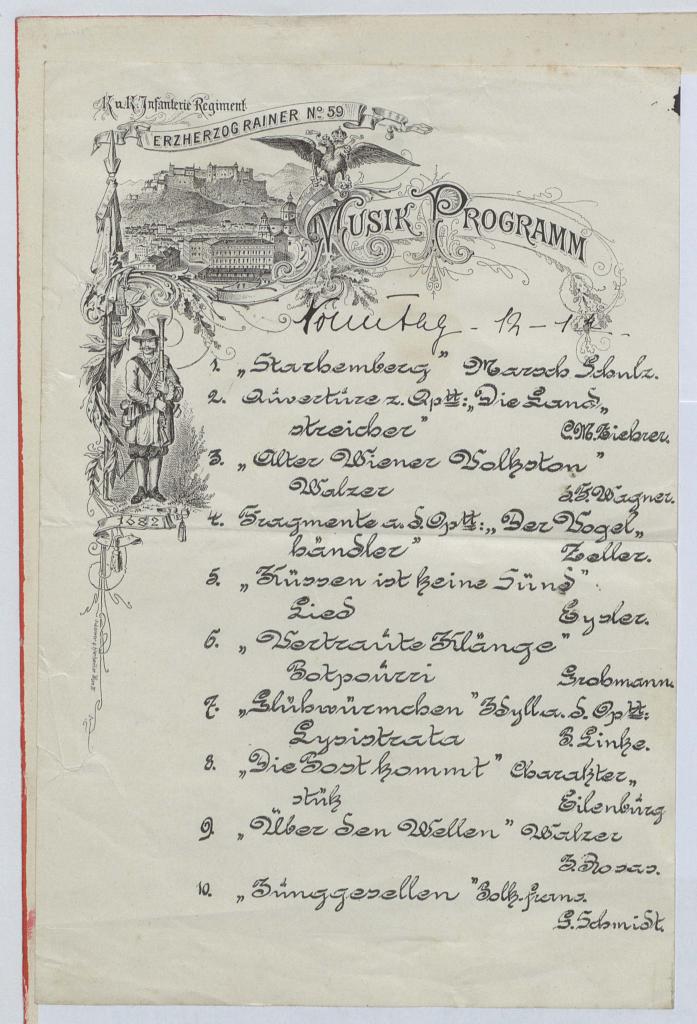 K.u.K. Infanterie Regiment
ERZHERZOG RAINER No 59
MUSIK PROGRAMM
Sonntag - 12 - 1
1. „Starhemberg" Marsch Schulz.
2. Ouvertüre z. Optt: „Die Land„
streicher" C.M. Ziehrer.
3. „Alter Wiener Volkston"
Walzer J.F. Wagner.
4. Fragmente a. d. Optt: „Der Vogel„
händler" Zeller.
5. „Küssen ist keine Sünd"
Lied Eysler.
6. „Vertraute Klänge"
Potpourri Grobmann.
7. „Glühwürmchen" Idyll a. d. Optt:
Lysistrata P. Linke.
8. „Die Post kommt" Charakter„
stük Eilenburg
9. „Über den Wellen" Walzer
J. Rosas.
10. „Junggesellen" Polk. franz.
G. Schmidt.
1682